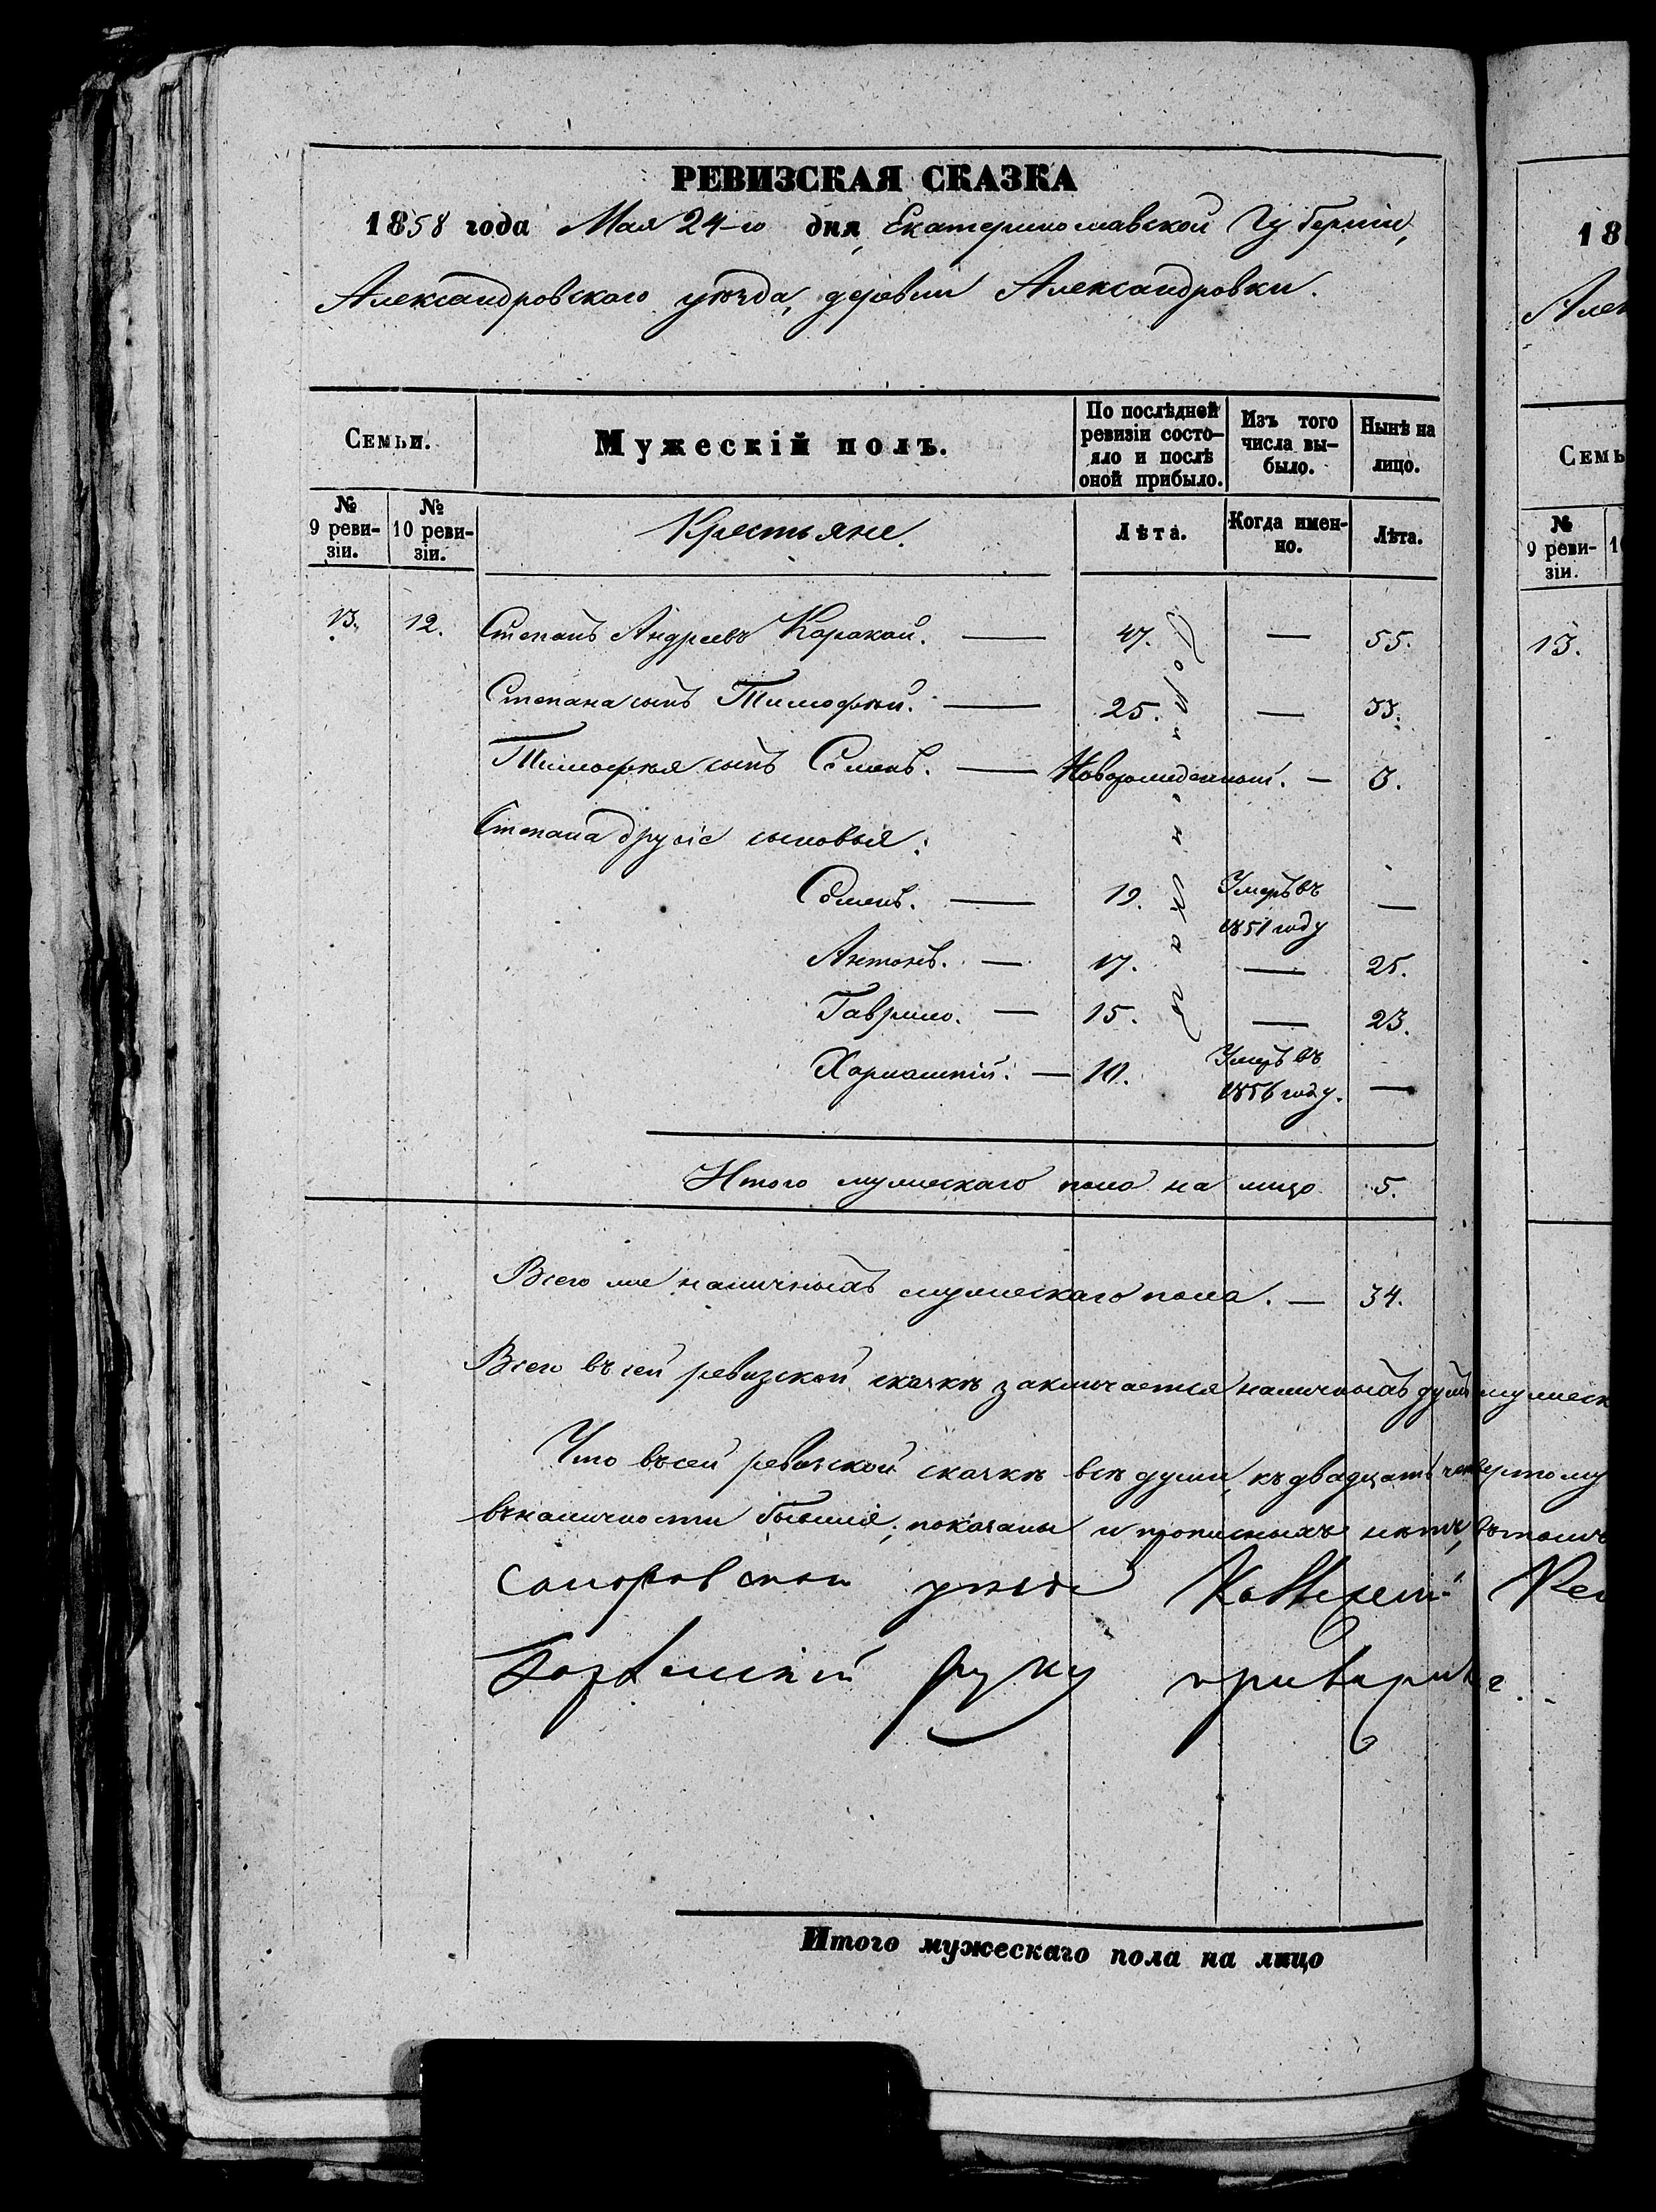 РЕВИЗСКАЯ СКАЗКА
1858 года Мая 24-го дня, Екатеринославской Губерніи,
Александровского уѣзда, деревни Александровки.
Семьи.
Мужескій полъ.
По послѣдней ревизіи состо-
яло и послѣ
оной прибыло.
Изъ того
числа вы-
было.
Нынѣ на
лицо.
№
9 реви-
зіи.
№
10 реви-
зіи.
Крестьяне.
Лѣта.
Когда имен-
но.
Лѣта.
13. 12. Степанъ Андреевъ Каракай. — 47. — 55.
Степана сынъ Тимофѣй. — 25. — 33.
Тимофѣя сынъ Семенъ. — Новорожденный. — 3.
Степана другіе сыновья:
Семенъ. — 19. Умеръ въ
1851 году —
Антонъ. — 17. — 25.
Гаврило. — 15. — 23.
10. Умеръ въ
1856 году. —
Итого мужескаго пола на лицо 5.
Всего же наличныхъ мужескаго пола. — 34.
Всего въ сей ревизской сказкѣ заключается наличныхъ душъ мужеск
Что въ сей ревизской сказкѣ всѣ души, къ двадцать четвертому
въ наличности бывшія, показаны и прописныхъ нѣтъ, въ томъ
руку
Итого мужескаго пола на лицо
18
Алек
Семь
№
9 реви-
зіи.
13.